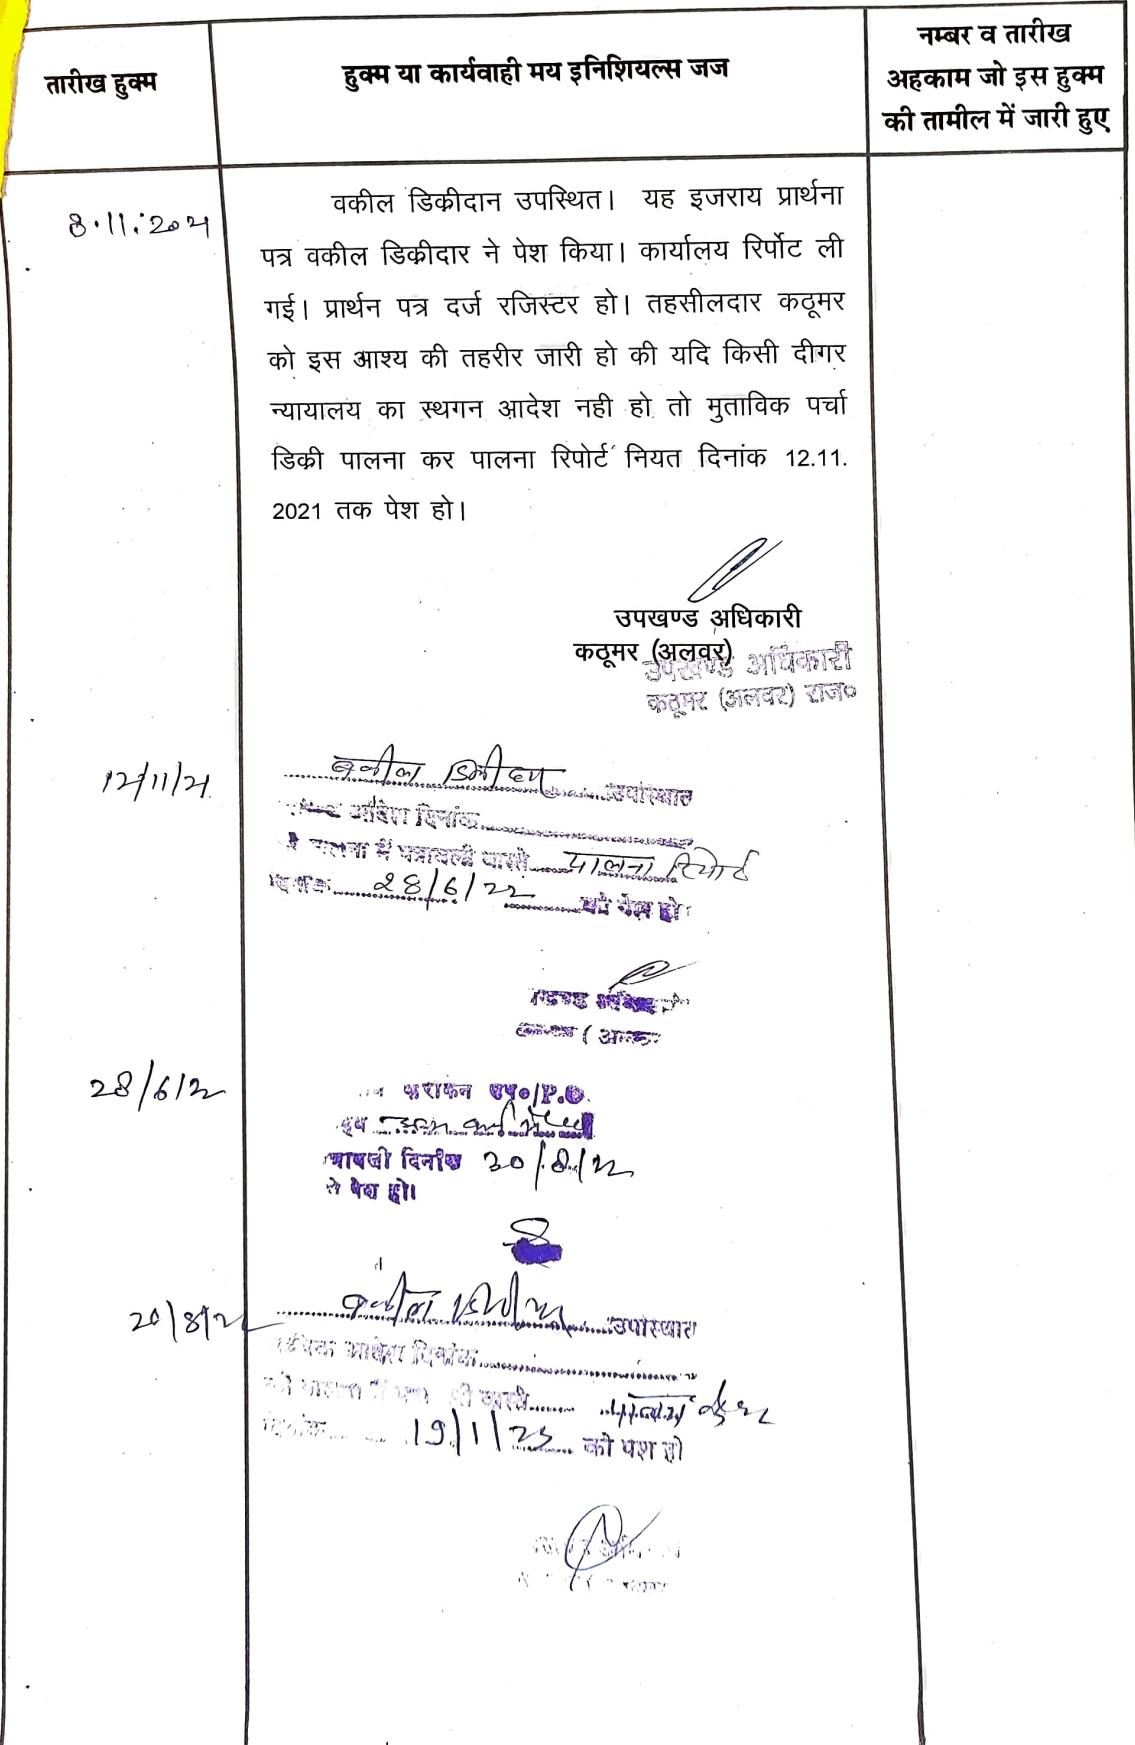 तारीख हुक्म
हुक्म या कार्यवाही मय इनिशियल्स जज
नम्बर व तारीख
अहकाम जो इस हुक्म
की तामील में जारी हुए
8.11.2021
वकील डिकीदान उपस्थित। यह इजराय प्रार्थना
पत्र वकील डिकीदार ने पेश किया। कार्यालय रिर्पोट ली
गई। प्रार्थन पत्र दर्ज रजिस्टर हो। तहसीलदार कठूमर
को इस आश्य की तहरीर जारी हो की यदि किसी दीगर
न्यायालय का स्थगन आदेश नही हो तो मुताविक पर्चा
डिकी पालना कर पालना रिपोर्ट नियत दिनांक 12.11.
2021 तक पेश हो।
उपखण्ड अधिकारी
कठूमर (अलवर)
उपखण्ड अधिकारी
कठूमर (अलवर) राज०
12/11/21
वकील उपस्थित
आदेश दिनांक
पालना में पत्रावली वास्ते पालना रिपोर्ट
दिनांक 28/6/22 को पेश हो
28/6/22
P.O.
दिनांक 20/8/22
से पेश हो।
20/8/22
वकील उपस्थित
आदेश दिनांक
वास्ते
दिनांक 19/1/23 को पेश हो